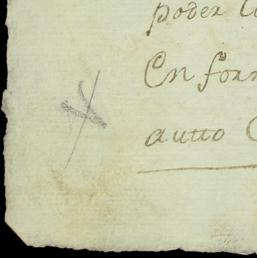 poder
En for
autto